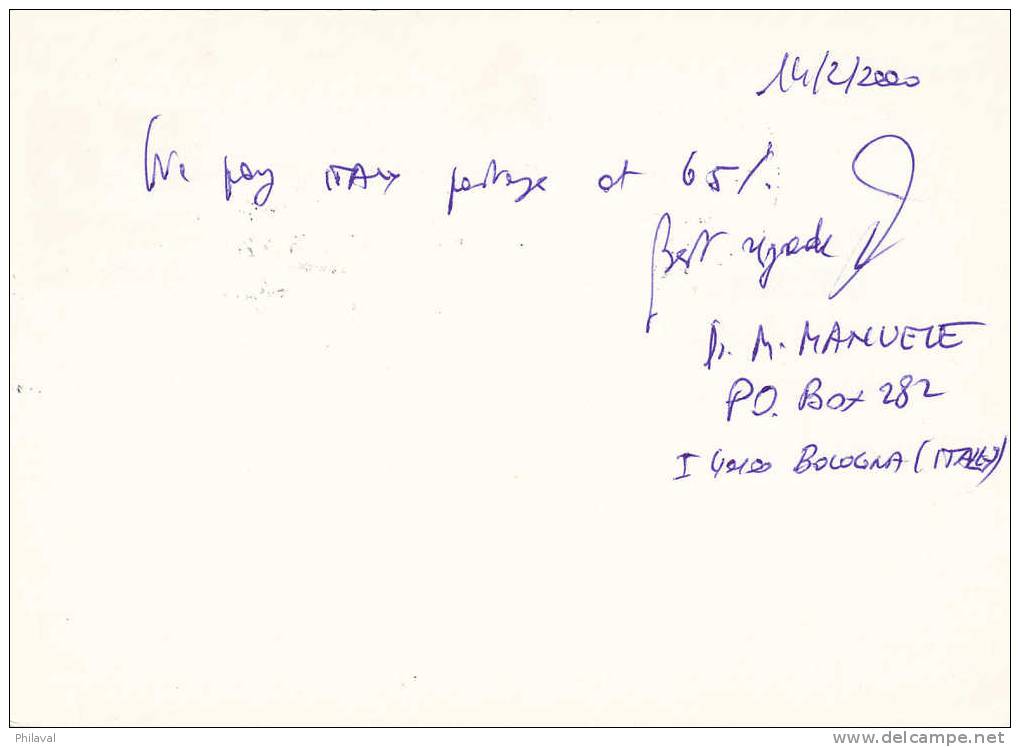 14/2/2000
We pay ITALY postage at 65%.
Best regards
Dr. M. MANUELE
P.O. Box 282
I 40100 BOLOGNA (ITALY)
Philaval
www.delcampe.net